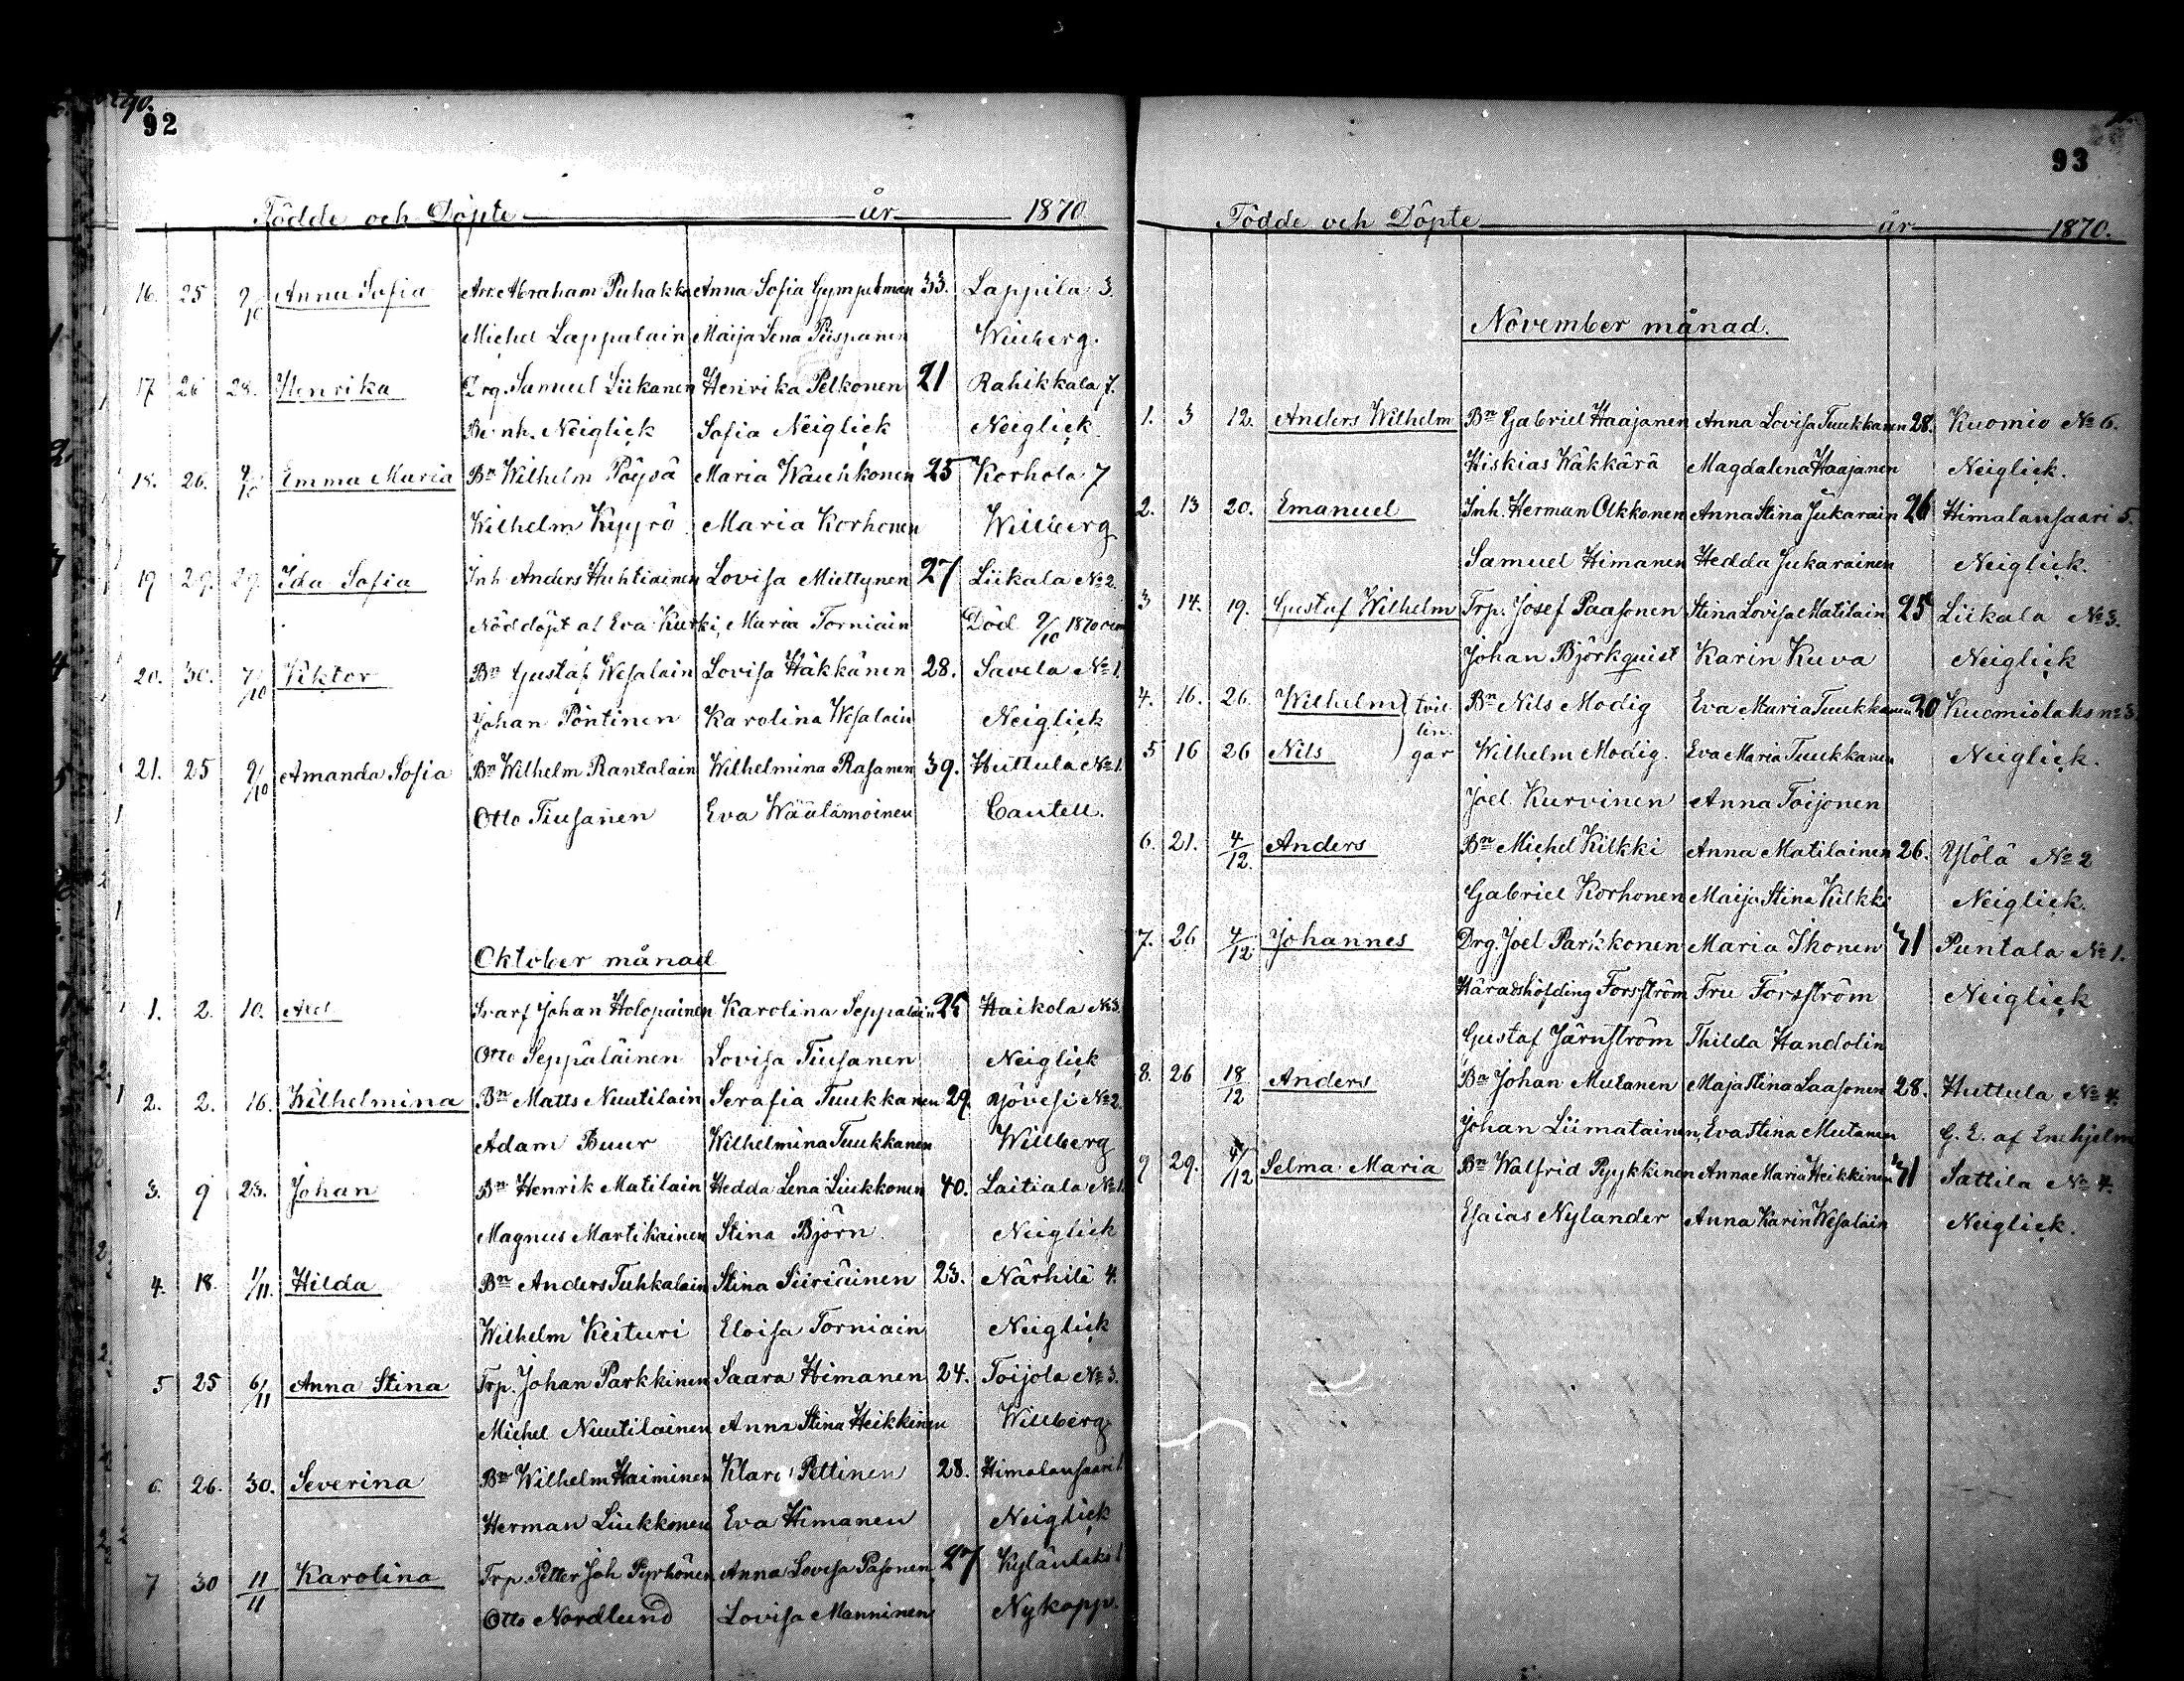 92
Födde och Döpte år 1870
16. 25 9/10 Anna Sofia Abraham Puhakka Anna Sofia 33. Lappila 3.
Michel Lappalain Maija Lena Piispanen Willberg.
17 26 28. Henrika Drg. Samuel Liikanen Henrika Pelkonen 21 Rahikkala 7.
Bernh. Neiglick Sofia Neiglick Neiglick.
18. 26. 9/10 Emma Maria Bn Wilhelm Pöysä Maria Wauhkonen 25 Korhola 7
Wilhelm Kyyrö Maria Korhonen Willberg
19 29. 29. Ida Sofia Inh Anders Huhtiainen Lovisa Miettynen 27 Liikala No 2.
Nöddöpt af Eva Kurki, Maria Torniain Död 9/10 1870
20. 30. 7/10 Viktor Bn Gustaf Wesalain Lovisa Häkkänen 28. Savela No 1.
Johan Pöntinen Karolina Wesalain Neiglick
21. 25 9/10 Amanda Sofia Bn Wilhelm Rantalain Wilhelmina Rasanen 39. Huttula No 1.
Otto Tiusanen Eva Wäälämoinen Cantell.
Oktober månad
1. 2. 10. Axel Johan Holopainen Karolina Seppäläin 25 Haikola No 3.
Otto Seppäläinen Lovisa Tiusanen Neiglick
2. 2. 16. Wilhelmina Bn Matts Nuutilain Serafia Tuukkanen 29. Yövesi No 2.
Adam Buur Wilhelmina Tuukkanen Willberg
3. 9 23. Johan Bn Henrik Matilain Hedda Lena Liukkonen 40. Laitiala No 1.
Magnus Martikainen Stina Björn. Neiglick
4. 18. 1/11. Hilda Bn Anders Tuhkalain Stina Siiriäinen 23. Närhilä 4.
Wilhelm Keituri Eloisa Torniain Neiglick
5 25 6/11 Anna Stina Trp. Johan Parkkinen Saara Himanen 24. Toijola No 3.
Michel Nuutilainen Anna Stina Heikkinen Willberg
6. 26. 30. Severina Bn Wilhelm Haiminen Klara Pettinen 28. Himalansaari 1.
Herman Liukkonen Eva Himanen Neiglick
7 30 11/11 Karolina Trp. Petter Joh Pyrhönen Anna Lovisa Pasonen 27 Kylänlaks 1
Otto Nordlund Lovisa Manninen Nykopp.
93
Födde och Döpte år 1870.
November månad.
1. 3 12. Anders Wilhelm Bn Gabriel Haajanen Anna Lovisa Tuukkanen 28. Kuomio No 6.
Hiskias Käkkärä Magdalena Haajanen Neiglick.
2. 13 20. Emanuel Inh. Herman Olkkonen Anna Stina Jukarain 26 Himalansaari 5.
Samuel Himanen Hedda Jukarainen Neiglick.
3 14. 19. Gustaf Wilhelm Trp. Josef Paasonen Stina Lovisa Matilain 25 Liikala No 3.
Johan Björkquist Karin Kuva Neiglick
4. 16. 26. Wilhelm } tvil Bn Nils Modig Eva Maria Tuukkanen 20 Kuomiolaks no 3.
lin.
5 16 26 Nils } gar Wilhelm Modig. Eva Maria Tuukkanen Neiglick.
Joel Kurvinen Anna Toijonen
6. 21. 4/12. Anders Bn Michel Kilkki Anna Matilainen 26. Ylölä No 2
Gabriel Korhonen Maija Stina Kilkki Neiglick.
7. 26 4/12 Johannes Drg. Joel Parkkonen Maria Ihonen 31 Puntala No 1.
Häradshöfding Forsström Fru Forsström Neiglick
Gustaf Järnström Thilda Handolin
8. 26 18/12 Anders Bn Johan Mutanen Maja Stina Laasonen 28. Huttula No 4.
Johan Liimatainen, Eva Stina Mutanen G. E. af Enehjelm
9 29. 4/12 Selma Maria Bn Walfrid Pyykkinen Anna Maria Heikkinen 31 Sattila No 4.
Esaias Nylander Anna Karin Wesalain Neiglick.